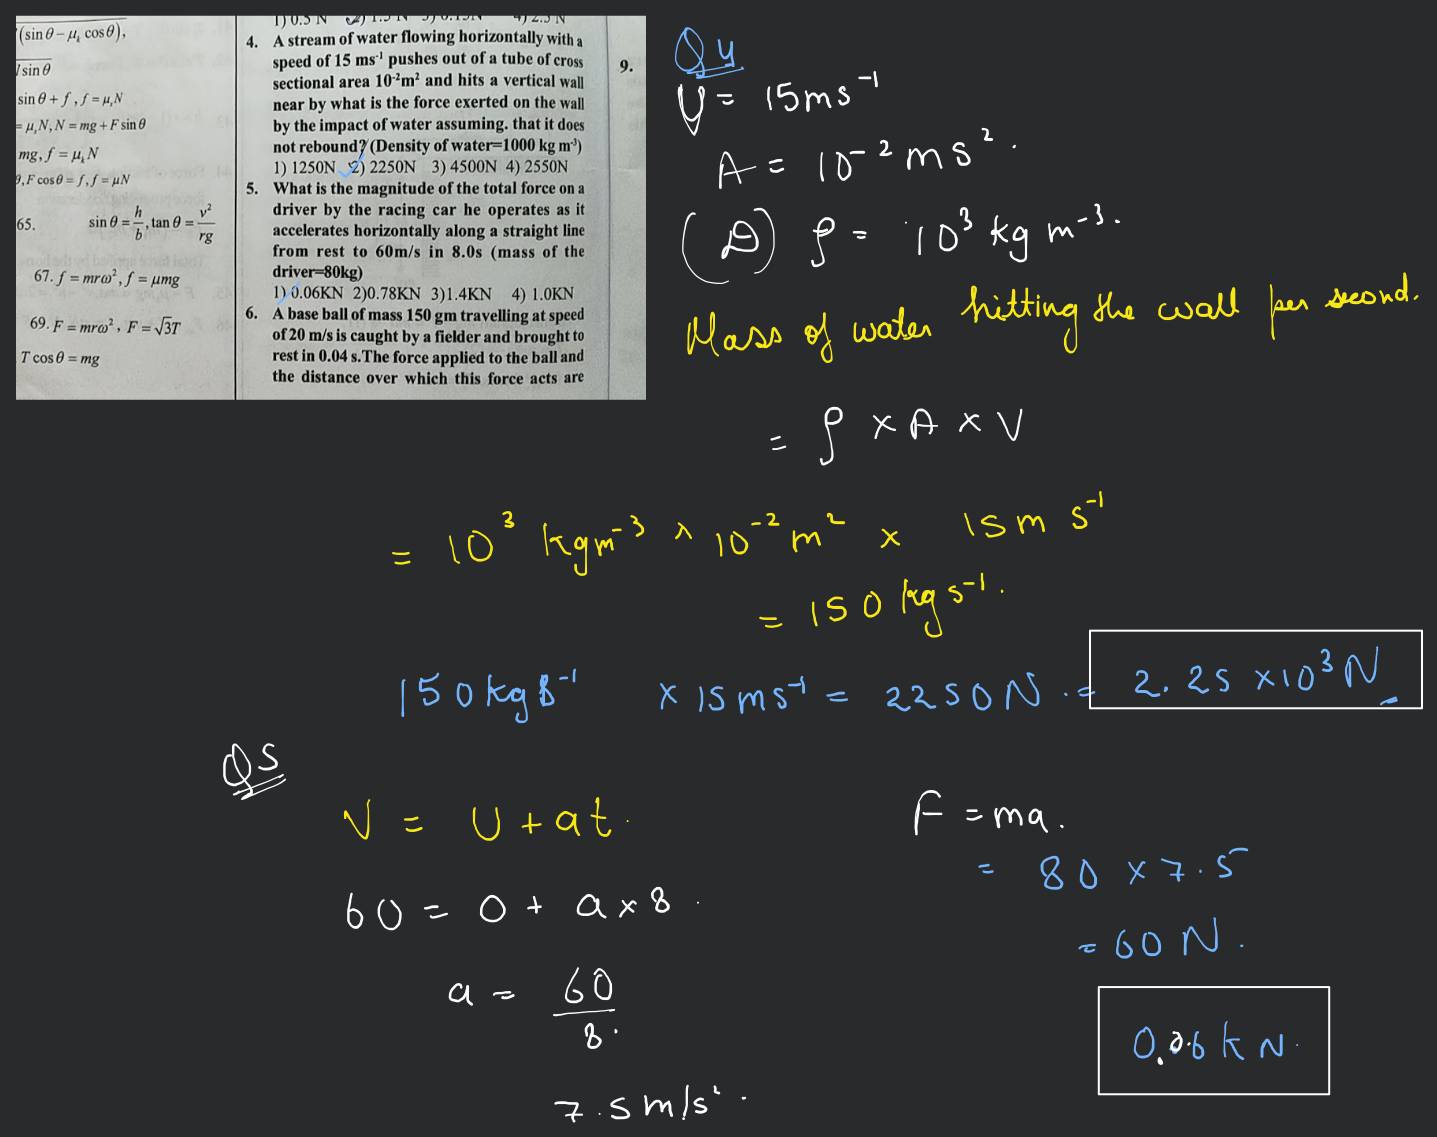 (sin θ − μₖ cos θ),
sin θ
sin θ + f , f = μₛN
= μₛN, N = mg + F sin θ
mg, f = μₖN
θ, F cos θ = f, f = μN
65. sin θ = h/b, tan θ = v²/rg
67. f = mrω², f = μmg
69. F = mrω², F = √3T
T cos θ = mg
1) 0.5 N 2) 1.5 N 3) 0.15N 4) 2.5 N
4. A stream of water flowing horizontally with a
speed of 15 ms⁻¹ pushes out of a tube of cross
sectional area 10⁻²m² and hits a vertical wall
near by what is the force exerted on the wall
by the impact of water assuming. that it does
not rebound? (Density of water=1000 kg m⁻³)
1) 1250N 2) 2250N 3) 4500N 4) 2550N
5. What is the magnitude of the total force on a
driver by the racing car he operates as it
accelerates horizontally along a straight line
from rest to 60m/s in 8.0s (mass of the
driver=80kg)
1) 0.06KN 2)0.78KN 3)1.4KN 4) 1.0KN
6. A base ball of mass 150 gm travelling at speed
of 20 m/s is caught by a fielder and brought to
rest in 0.04 s.The force applied to the ball and
the distance over which this force acts are
9.
Q4
V = 15ms⁻¹
A = 10⁻² ms².
(D) ρ = 10³ kg m⁻³.
Mass of water hitting the wall per second.
= ρ × A × V
= 10³ kgm⁻³ × 10⁻² m² × 15m s⁻¹
= 150 kg s⁻¹.
150 kg s⁻¹ × 15 ms⁻¹ = 2250 N . = 2.25 ×10³ N
Q5
V = U + at.
60 = 0 + a × 8.
a = 60/8.
7.5 m/s².
F = ma.
= 80 × 7.5
= 60 N.
0.06 kN.